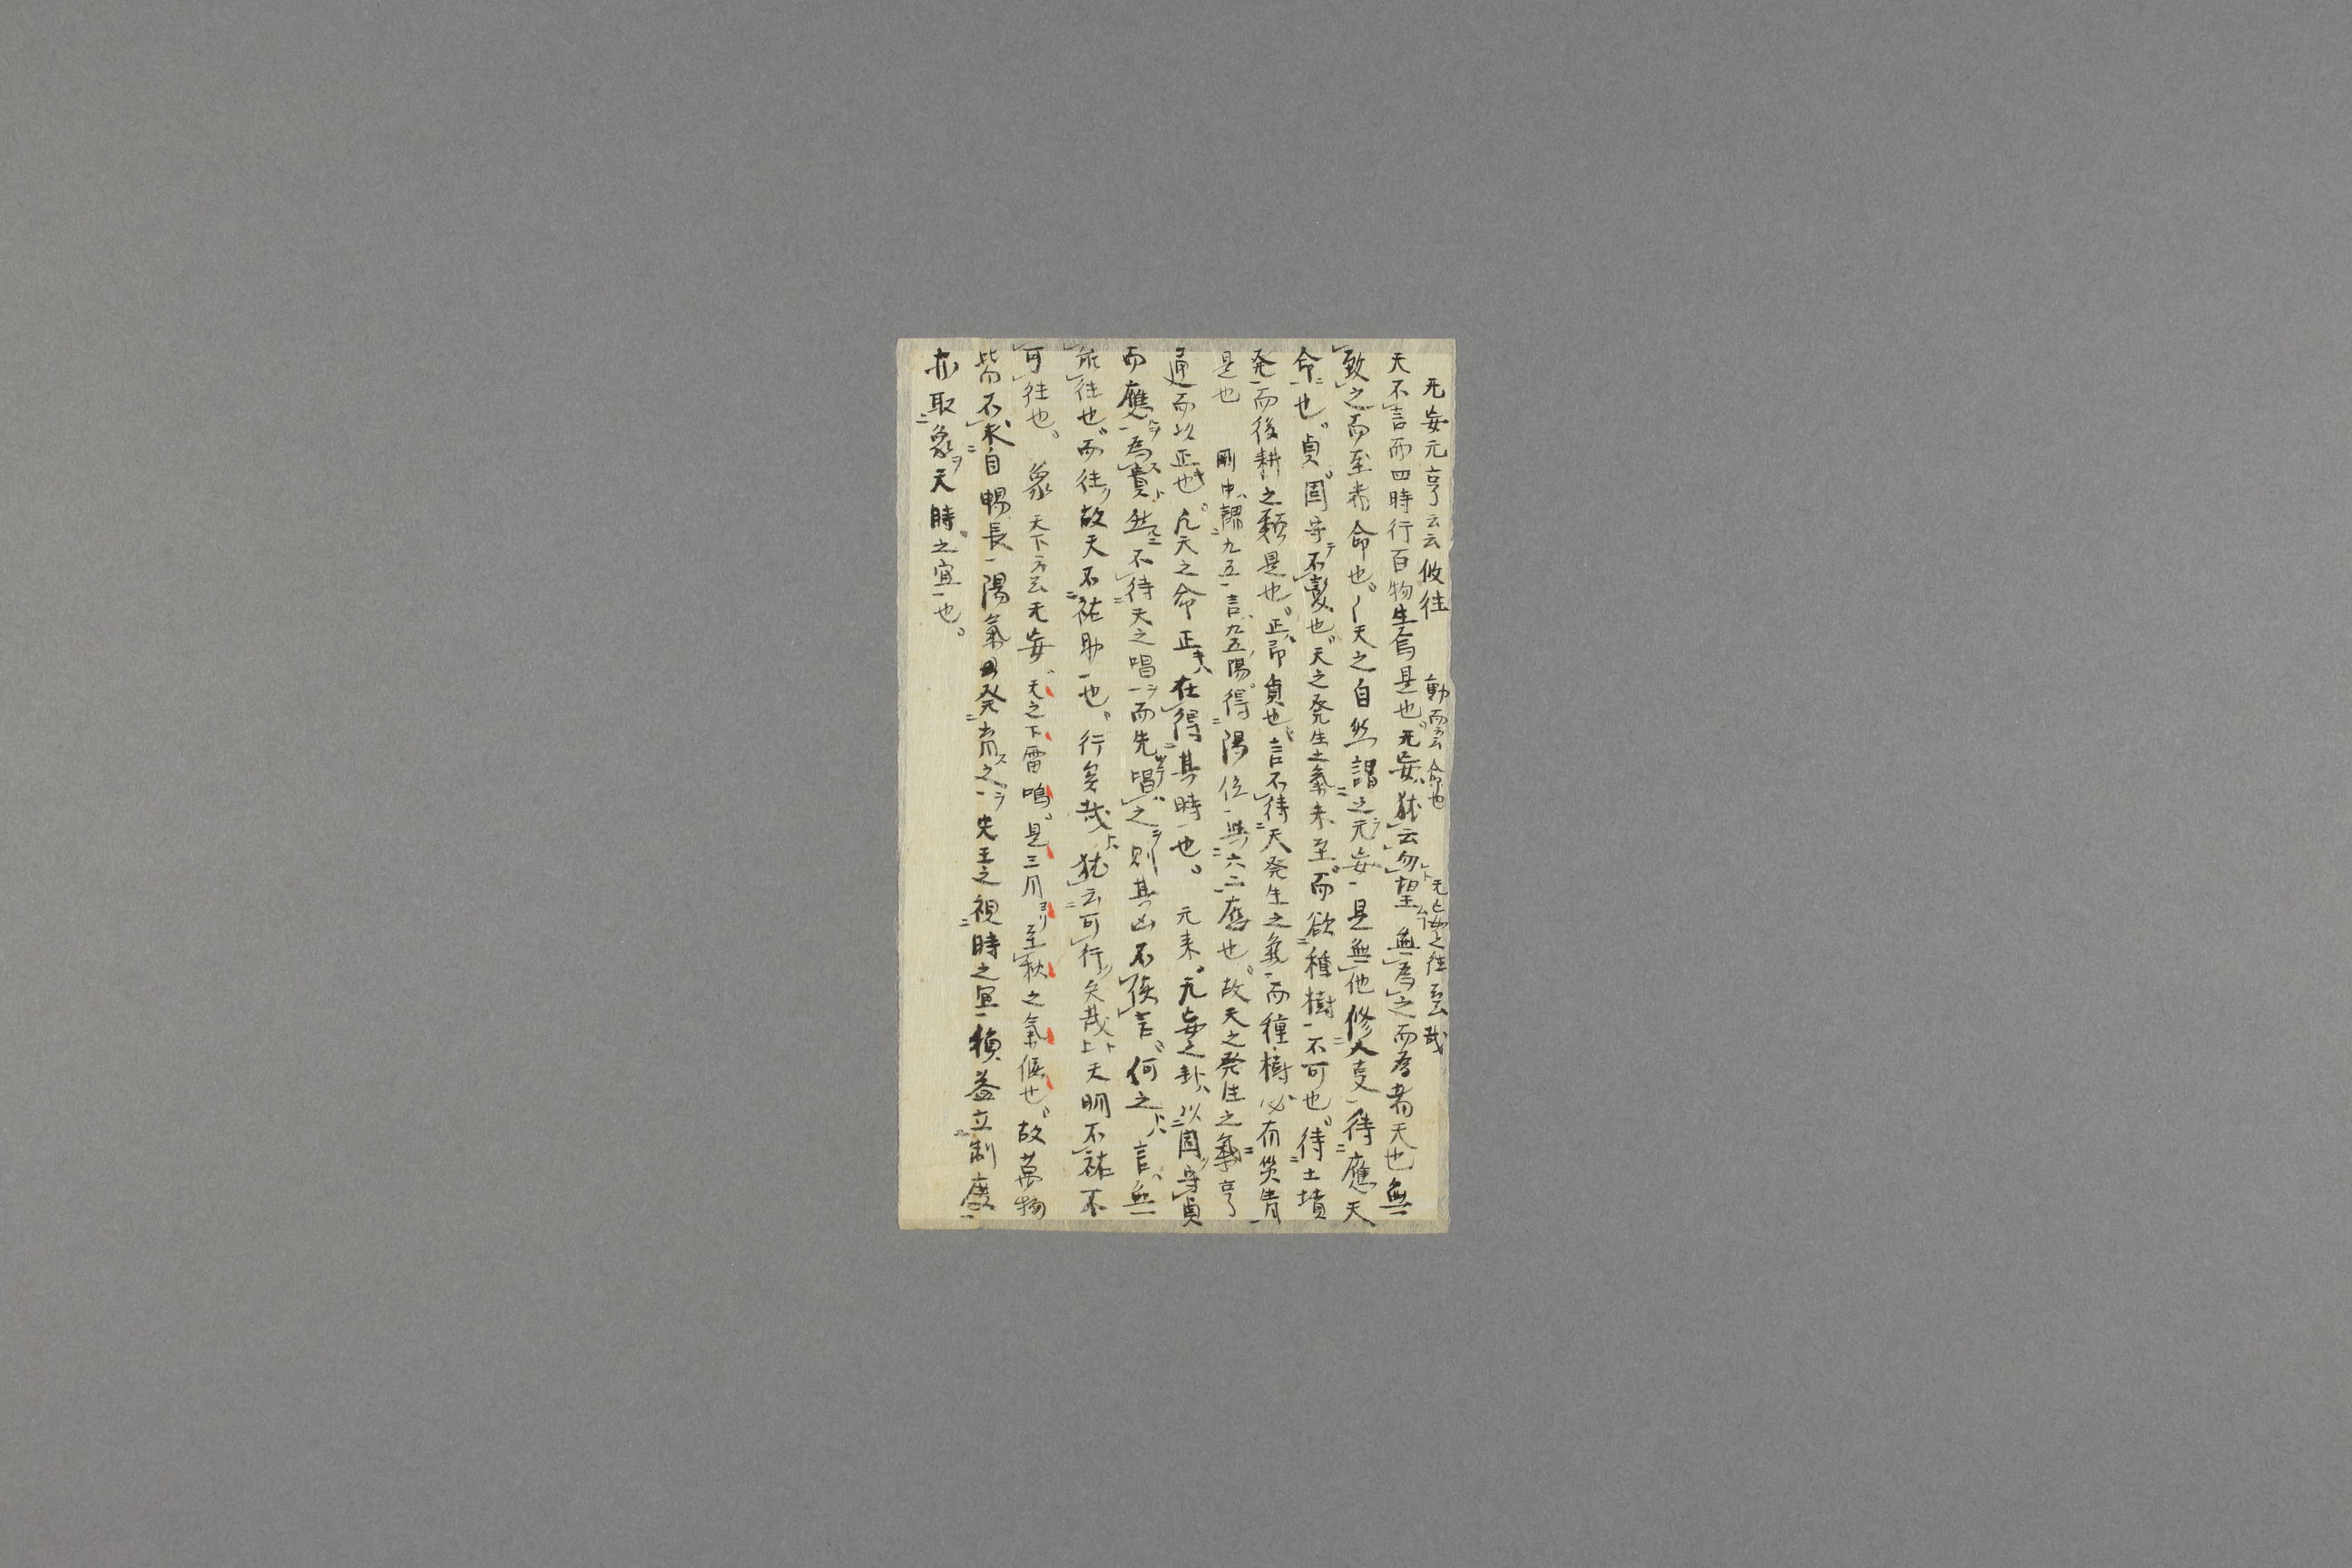 无妄元亨云云攸往 動而云云命也 无妄之往云云哉
天不言而四時行百物生焉是也无妄猶云勿望無為之而為者天也無
致之而至者命也天之自然謂之无妄是無他修人支待應天
命也貞固守不変也天之発生之氣未至而欲種樹不可也待土墳
発而後耕之類是也正即貞也言不待天発生之氣而種樹必有災眚
是也 剛中謂九五言九五陽得陽位與六二應也故天之発生之氣亨
通而以正也凡天之命正在得其時也 元来无妄之卦以固守貞
而應為貴然不待天之唱而先唱之則其凶不俟言何之言無
所往也而往故天不祐助也行矣哉猶云可行矣哉天明不祐不
可往也 象 天下云云无妄 天之下雷鳴是三月ヨリ至秋之氣候也故萬物
皆不求自暢長陽氣発育之先王之視時之宜損益立制度
亦取象天時之宜也